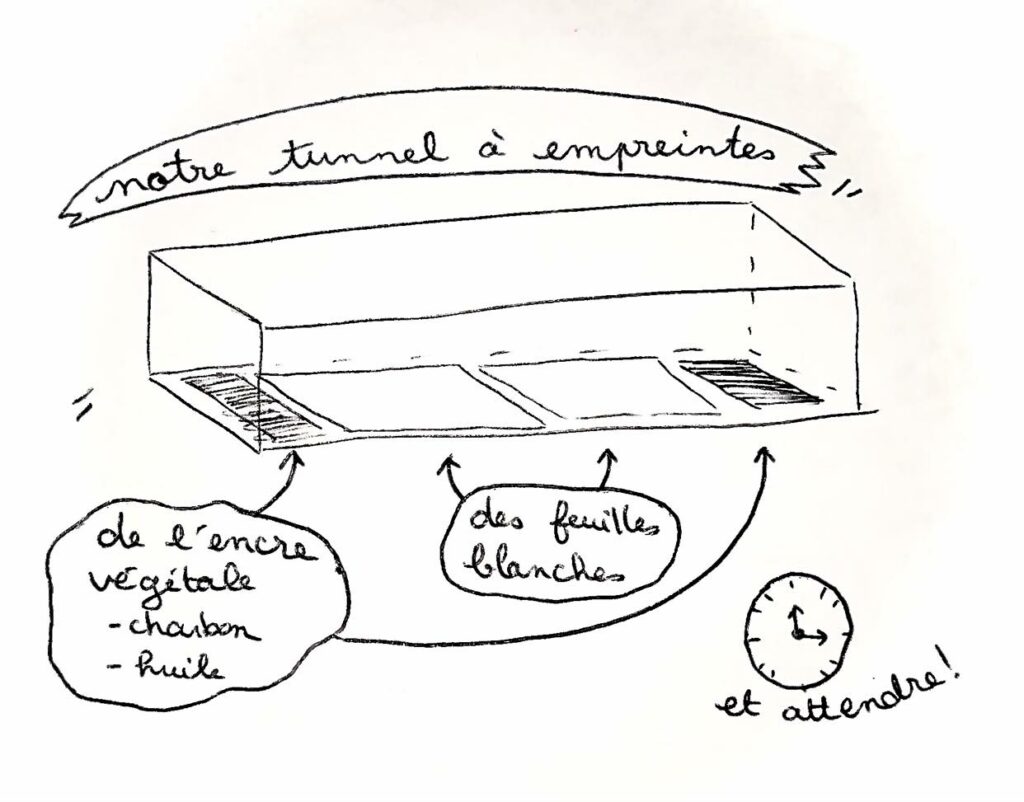 notre tunnel à empreintes
de l'encre
végétale
- charbon
- huile
des feuilles
blanches
et attendre !